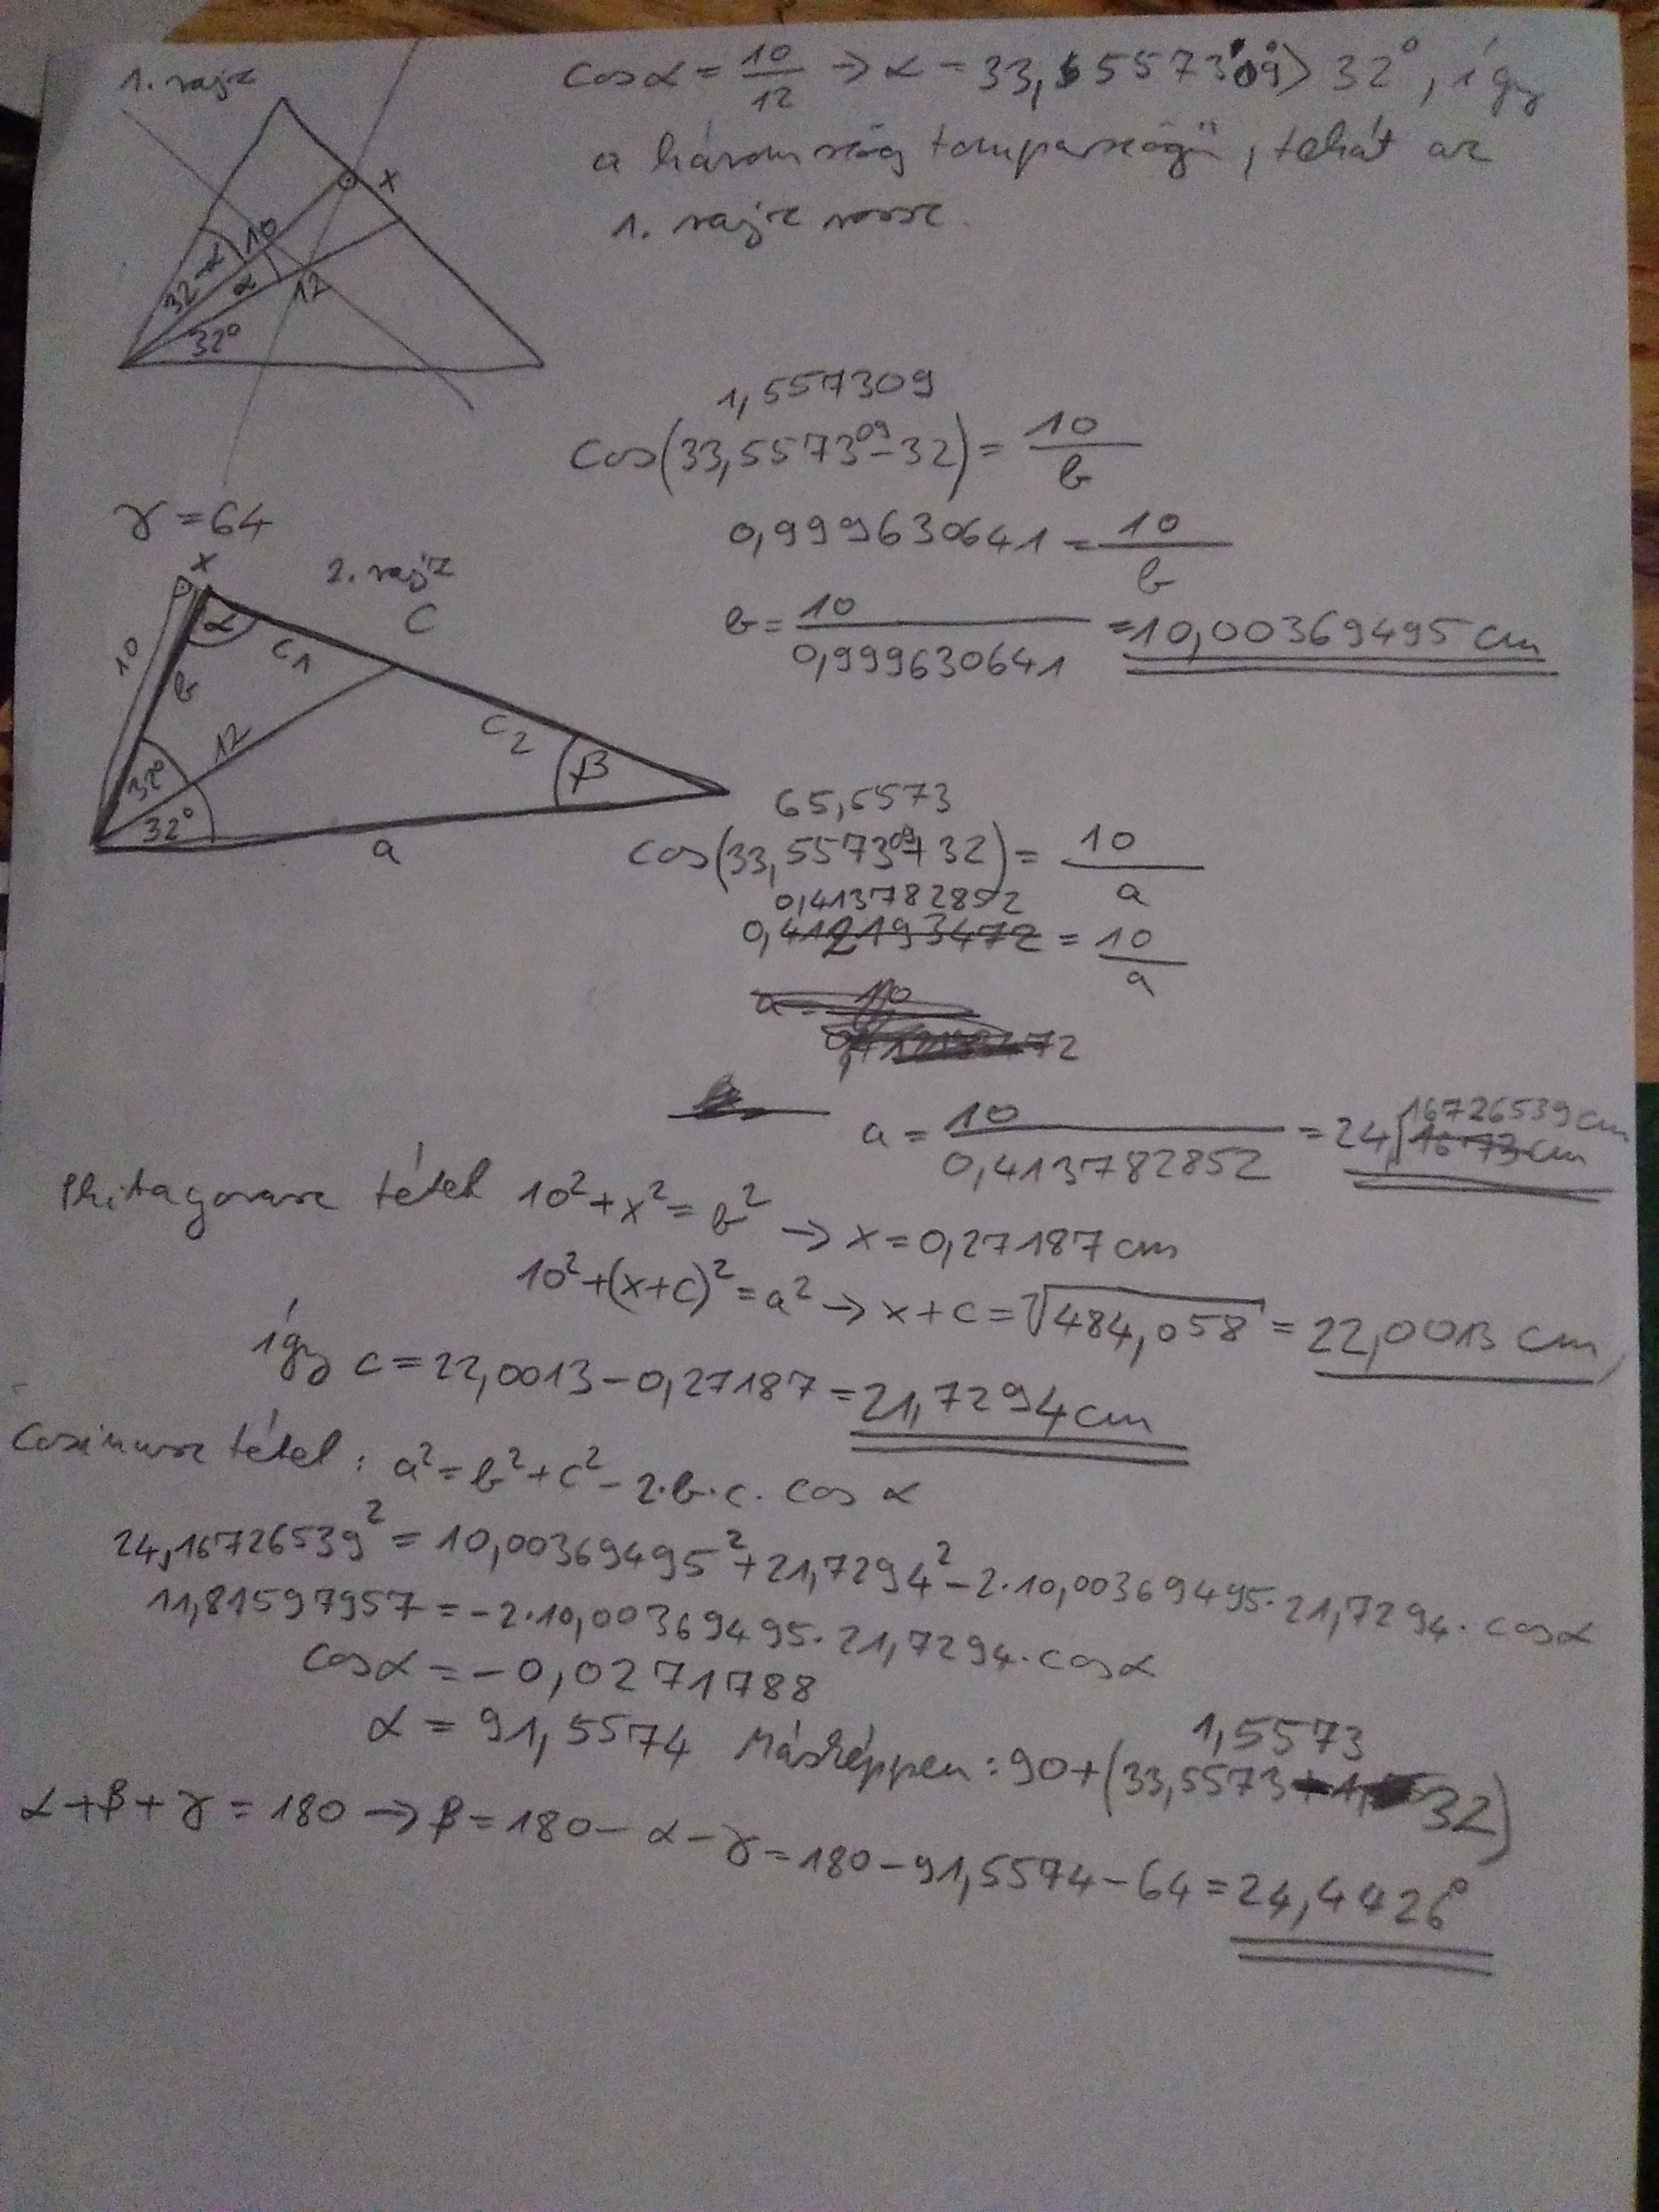 1. rajz
cos α = 10/12 → α = 33,557309° > 32°, így
a háromszög tompaszögű, tehát az
1. rajz rossz.
x
10
32-α
α
12
32°
1,557309
cos(33,557309-32) = 10/b
0,999630641 = 10/b
b = 10/0,999630641 = 10,00369495 cm
γ = 64
2. rajz
x
c
α
c1
10
b
12
c2
β
32°
32°
a
65,5573
cos(33,557309+32) = 10/a
0,413782852
0,412193472 = 10/a
a = 10/0,413782852 = 24,16726539 cm
Phitagorasz tétel 10²+x²=b² → x=0,27187 cm
10²+(x+c)²=a² → x+c=√484,058 = 22,0013 cm,
így c=22,0013-0,27187=21,7294 cm
Cosinusz tétel: a²=b²+c²-2·b·c·cos α
24,16726539²=10,00369495²+21,7294²-2·10,00369495·21,7294·cos α
11,81597957=-2·10,00369495·21,7294·cos α
cos α = -0,0271788
α = 91,5574 Másképpen: 90+(33,5573-32)
1,5573
α+β+γ=180 → β=180-α-γ=180-91,5574-64=24,4426°